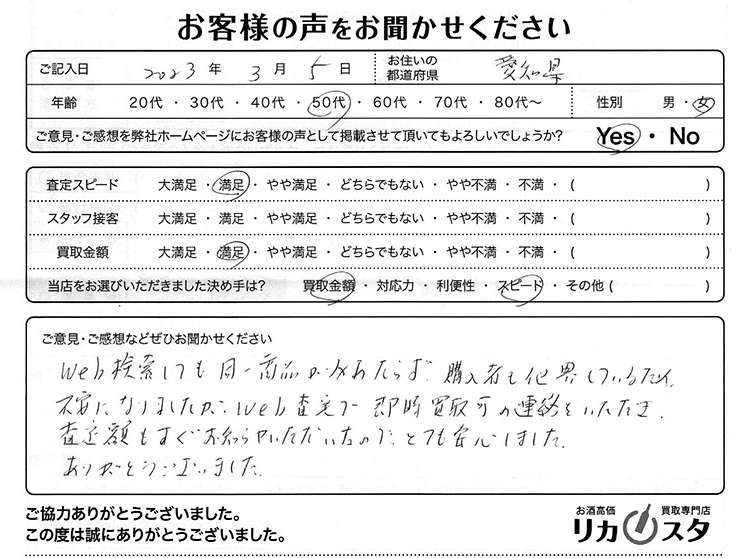 お客様の声をお聞かせください
ご記入日 2023 年 3 月 5 日 お住いの都道府県 愛知県
年齢 20代 ・ 30代 ・ 40代 ・ 50代 ・ 60代 ・ 70代 ・ 80代〜 性別 男 ・ 女
ご意見・ご感想を弊社ホームページにお客様の声として掲載させて頂いてもよろしいでしょうか? Yes ・ No
査定スピード 大満足 ・ 満足 ・ やや満足 ・ どちらでもない ・ やや不満 ・ 不満 ・ ( )
スタッフ接客 大満足 ・ 満足 ・ やや満足 ・ どちらでもない ・ やや不満 ・ 不満 ・ ( )
買取金額 大満足 ・ 満足 ・ やや満足 ・ どちらでもない ・ やや不満 ・ 不満 ・ ( )
当店をお選びいただきました決め手は? 買取金額 ・ 対応力 ・ 利便性 ・ スピード ・ その他 ( )
ご意見・ご感想などぜひお聞かせください
Web検索しても同一商品がみあたらず、購入者も他界しているため、
不安になりましたが、Web査定で即時買取可の連絡をいただき、
査定額もすぐお知らせいただいたので、とても安心しました。
ありがとうございました。
ご協力ありがとうございました。
この度は誠にありがとうございました。
お酒高価 買取専門店
リカスタ